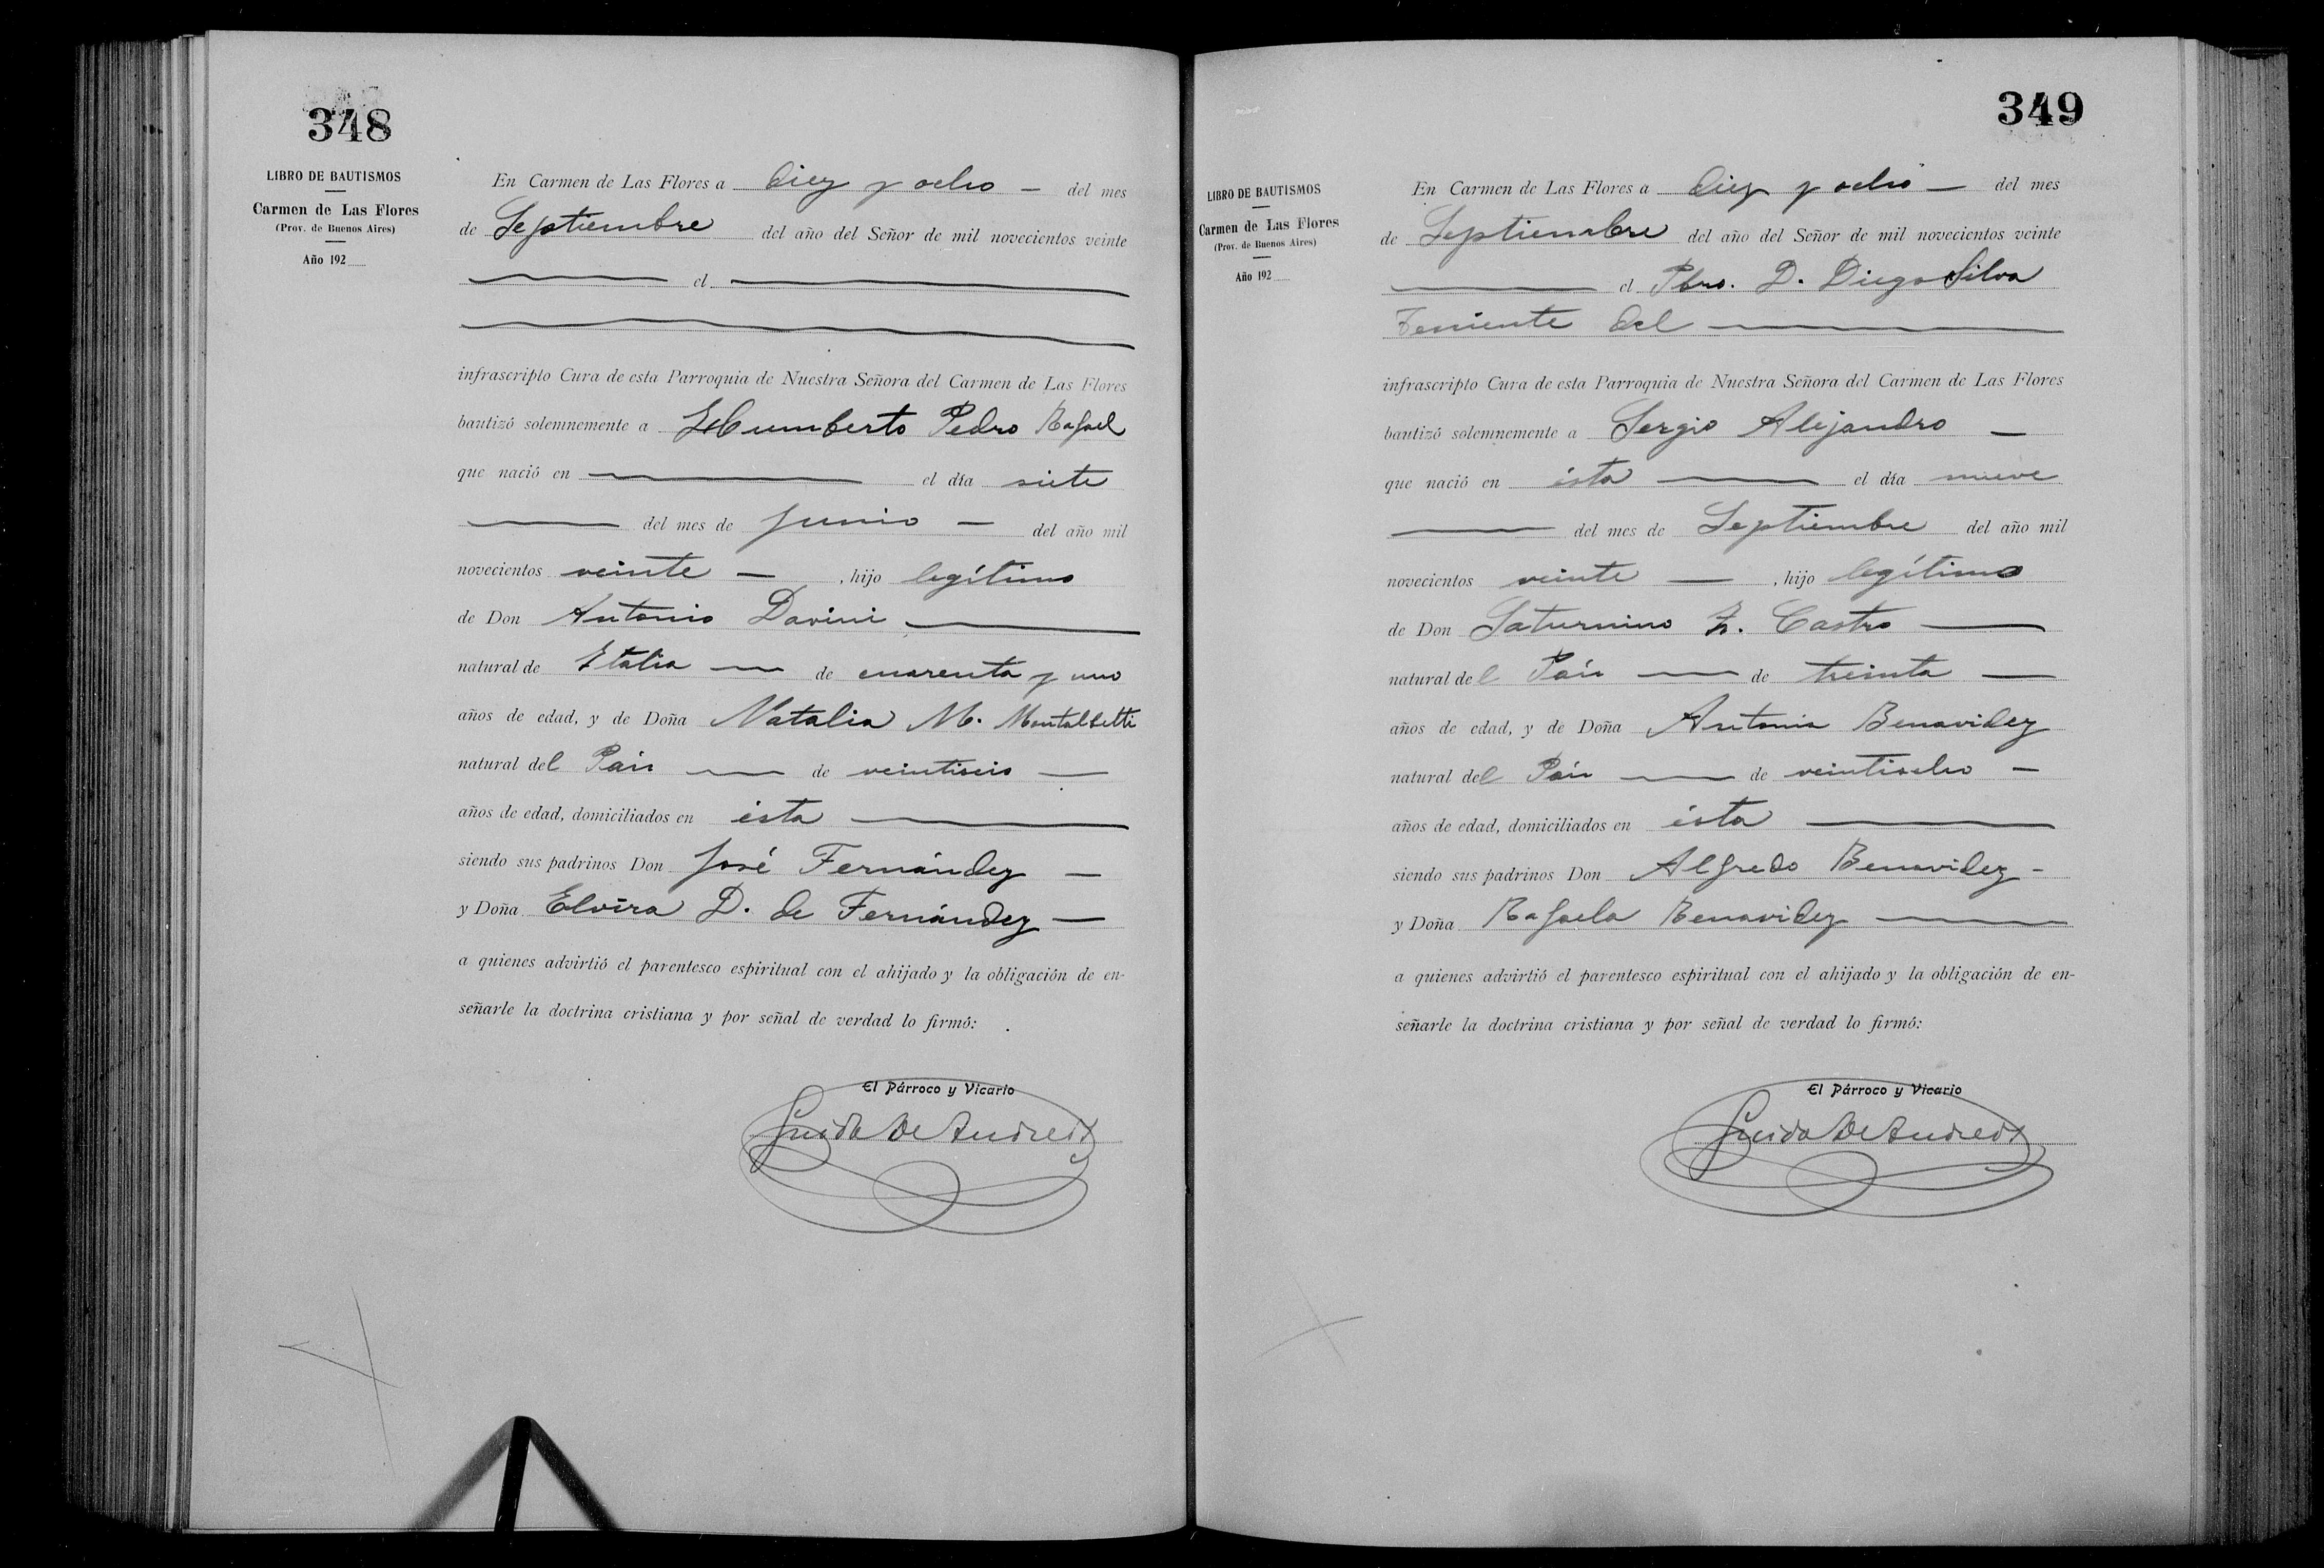 348
LIBRO DE BAUTISMOS
Carmen de Las Flores
(Prov. de Buenos Aires)
Año 192
En Carmen de Las Flores a diez y ocho — del mes
de Septiembre del año del Señor de mil novecientos veinte
— el —
infrascripto Cura de esta Parroquia de Nuestra Señora del Carmen de Las Flores
bautizó solemnemente a Humberto Pedro Rafael
que nació en — el día siete
— del mes de Junio — del año mil
novecientos veinte — , hijo legítimo
de Don Antonio Davini —
natural de Italia — de cuarenta y uno
años de edad, y de Doña Natalia M. Montalbetti
natural del País — de veintiseis —
años de edad, domiciliados en ésta —
siendo sus padrinos Don José Fernández —
y Doña Elvira D. de Fernández —
a quienes advirtió el parentesco espiritual con el ahijado y la obligación de en-
señarle la doctrina cristiana y por señal de verdad lo firmó:
El Párroco y Vicario
Guido De Andreis
349
LIBRO DE BAUTISMOS
Carmen de Las Flores
(Prov. de Buenos Aires)
Año 192
En Carmen de Las Flores a diez y ocho — del mes
de Septiembre del año del Señor de mil novecientos veinte
— el Pbro. D. Diego Silva
Teniente del —
infrascripto Cura de esta Parroquia de Nuestra Señora del Carmen de Las Flores
bautizó solemnemente a Sergio Alejandro —
que nació en ésta — el día nueve
— del mes de Septiembre del año mil
novecientos veinte — , hijo legítimo
de Don Saturnino Z. Castro —
natural del País — de treinta —
años de edad, y de Doña Antonia Benavidez
natural del País — de veintiocho —
años de edad, domiciliados en ésta —
siendo sus padrinos Don Alfredo Benavidez -
y Doña Rafaela Benavidez —
a quienes advirtió el parentesco espiritual con el ahijado y la obligación de en-
señarle la doctrina cristiana y por señal de verdad lo firmó:
El Párroco y Vicario
Guido De Andreis